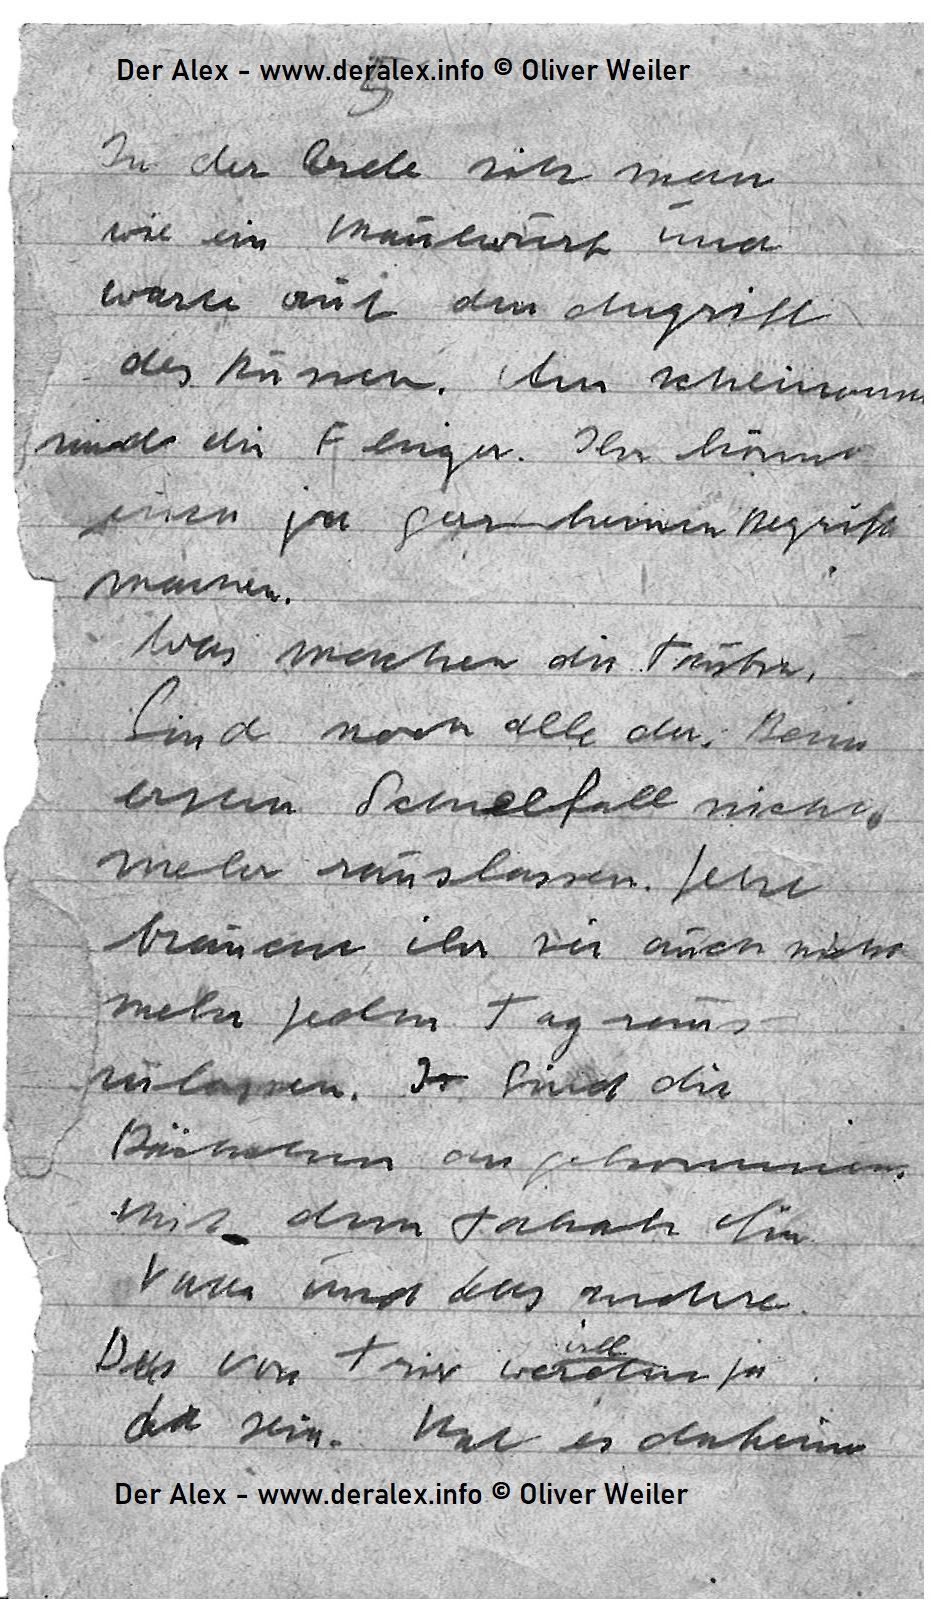 Der Alex - www.deralex.info © Oliver Weiler
5
In der Erde sitzt man
wie ein Maulwurf und
wartet auf den Angriff
des Russen. Am
sind die Flieger. Ihr könnt
euch ja gar keinen Begriff
machen.
Was machen die
Sind noch alle da. Beim
ersten Schneefall nicht
mehr rauslassen. Jetzt
braucht ihr sie auch nicht
mehr jeden Tag raus
zulassen. Sind die
Päckchen angekommen
mit dem Tabak für
Vater und das andere.
Das von Trier wird ja
da sein. Hat es daheim
Der Alex - www.deralex.info © Oliver Weiler